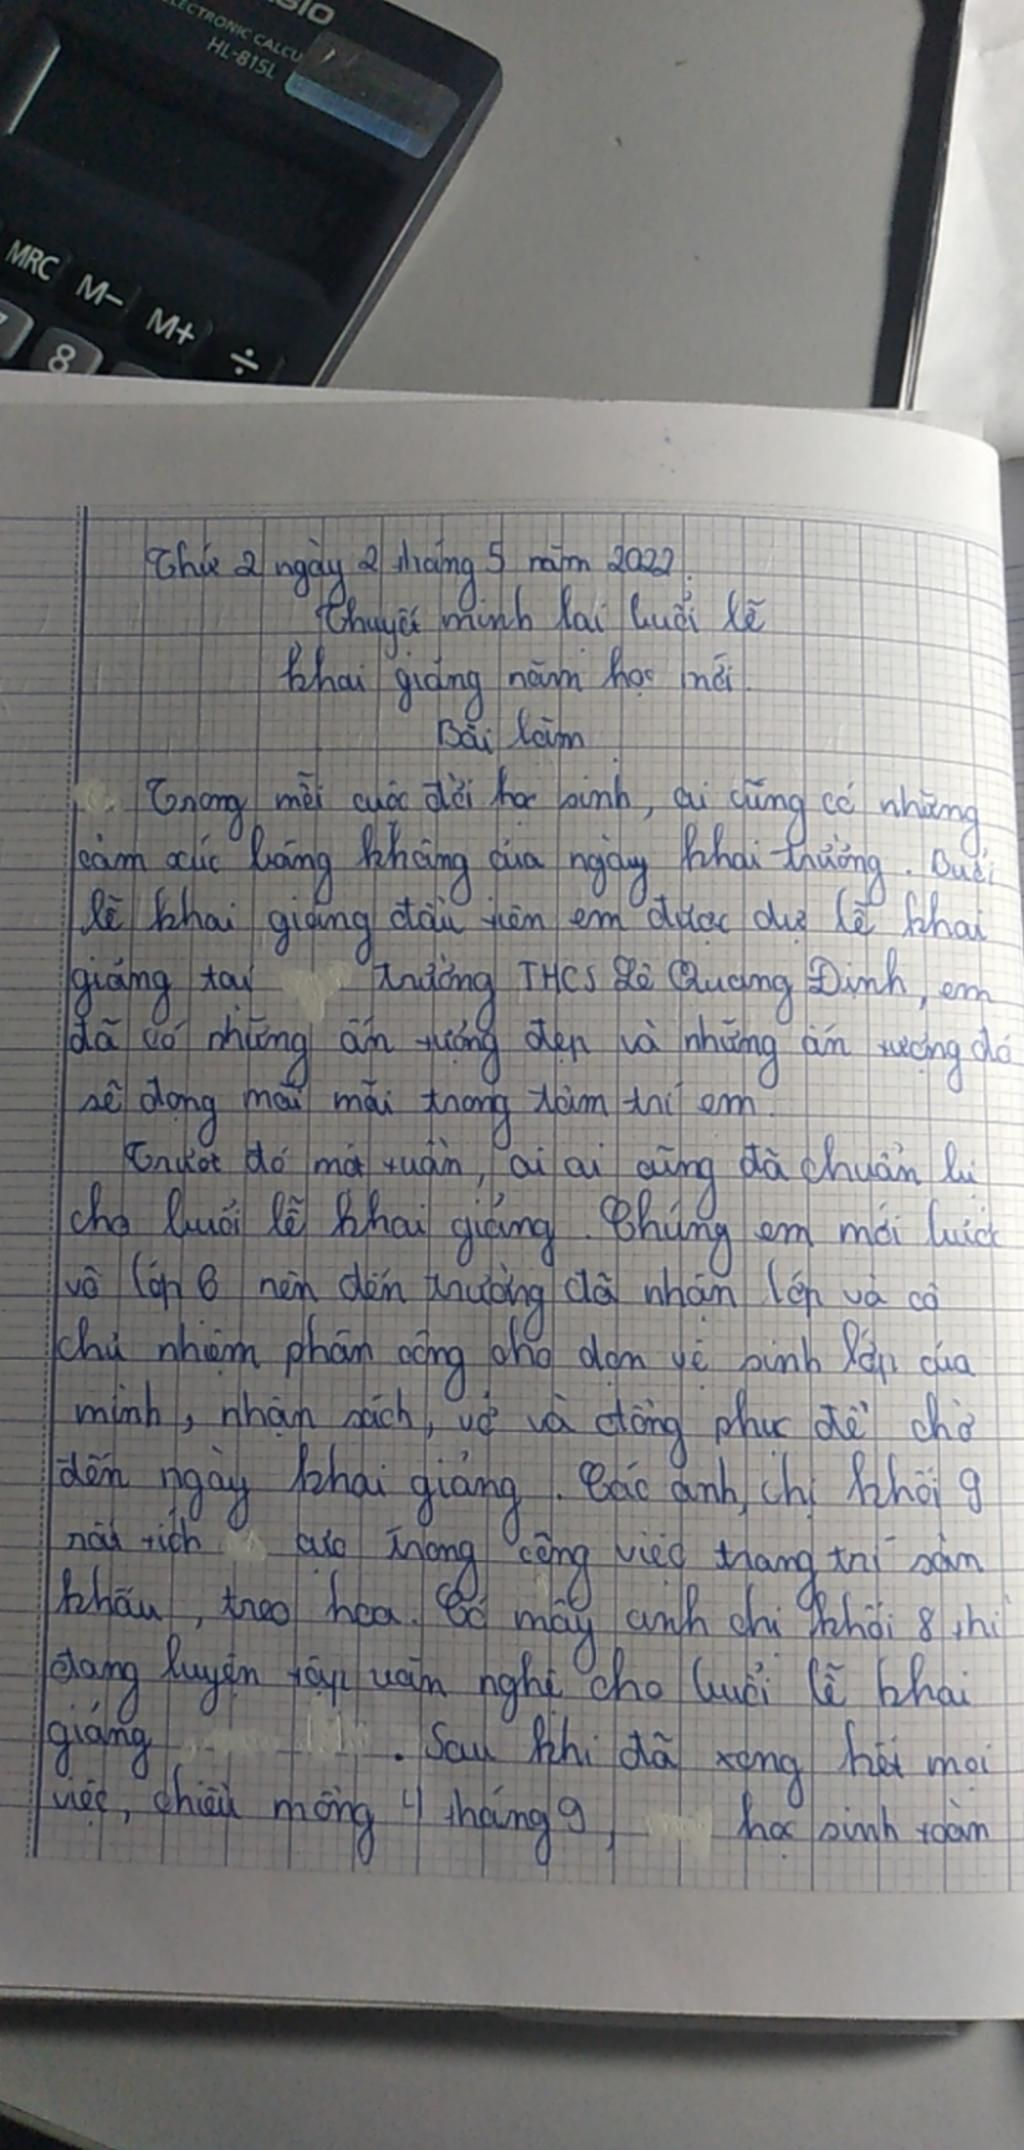 SIO
ELECTRONIC CALCU
HL-815L
MRC M- M+ ÷
8
Thứ 2 ngày 2 tháng 5 năm 2022.
Thuyết minh lại buổi lễ
khai giảng năm học mới.
Bài làm
Trong mỗi cuộc đời học sinh, ai cũng có những
cảm xúc bâng khâng của ngày khai trường. Buổi
lễ khai giảng đầu tiên em được dự lễ khai
giảng tại trường THCS Lê Quang Định, em
đã có những ấn tượng đẹp và những ấn tượng đó
sẽ đọng mãi mãi trong tâm trí em.
Trước đó một tuần, ai ai cũng đã chuẩn bị
cho buổi lễ khai giảng. Chúng em mới bước
vô lớp 6 nên đến trường đã nhận lớp và cô
chủ nhiệm phân công cho dọn vệ sinh lớp của
mình, nhận sách, vở và đồng phục để chờ
đến ngày khai giảng. Các anh, chị khối 9
rất tích cực trong công việc trang trí sân
khấu, treo hoa. Có mấy anh chị khối 8 thì
đang luyện tập văn nghệ cho buổi lễ khai
giảng . Sau khi đã xong hết mọi
việc, chiều mồng 4 tháng 9, học sinh toàn